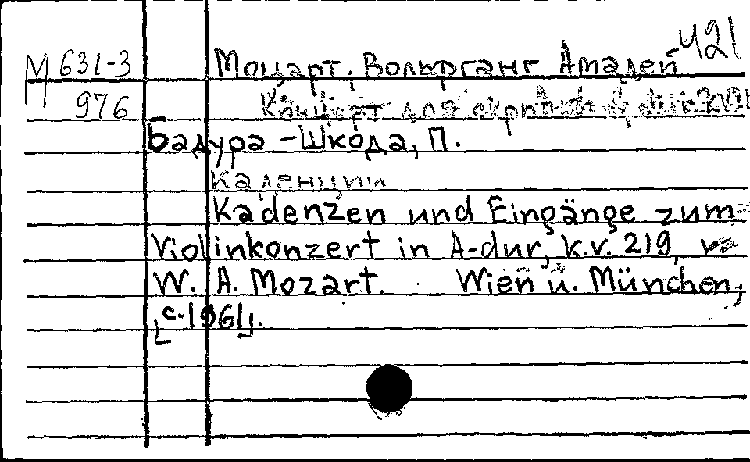 Ч21
М 631-3 Моцарт, Вольфганг Амадей
976 Концерт для скрипки
Бадура-Шкода, П.
Каденции
Kadenzen und Eingänge zum
Violinkonzert in A-dur, k.v. 219, va
W. A. Mozart. Wien u. München,
[c.1961].